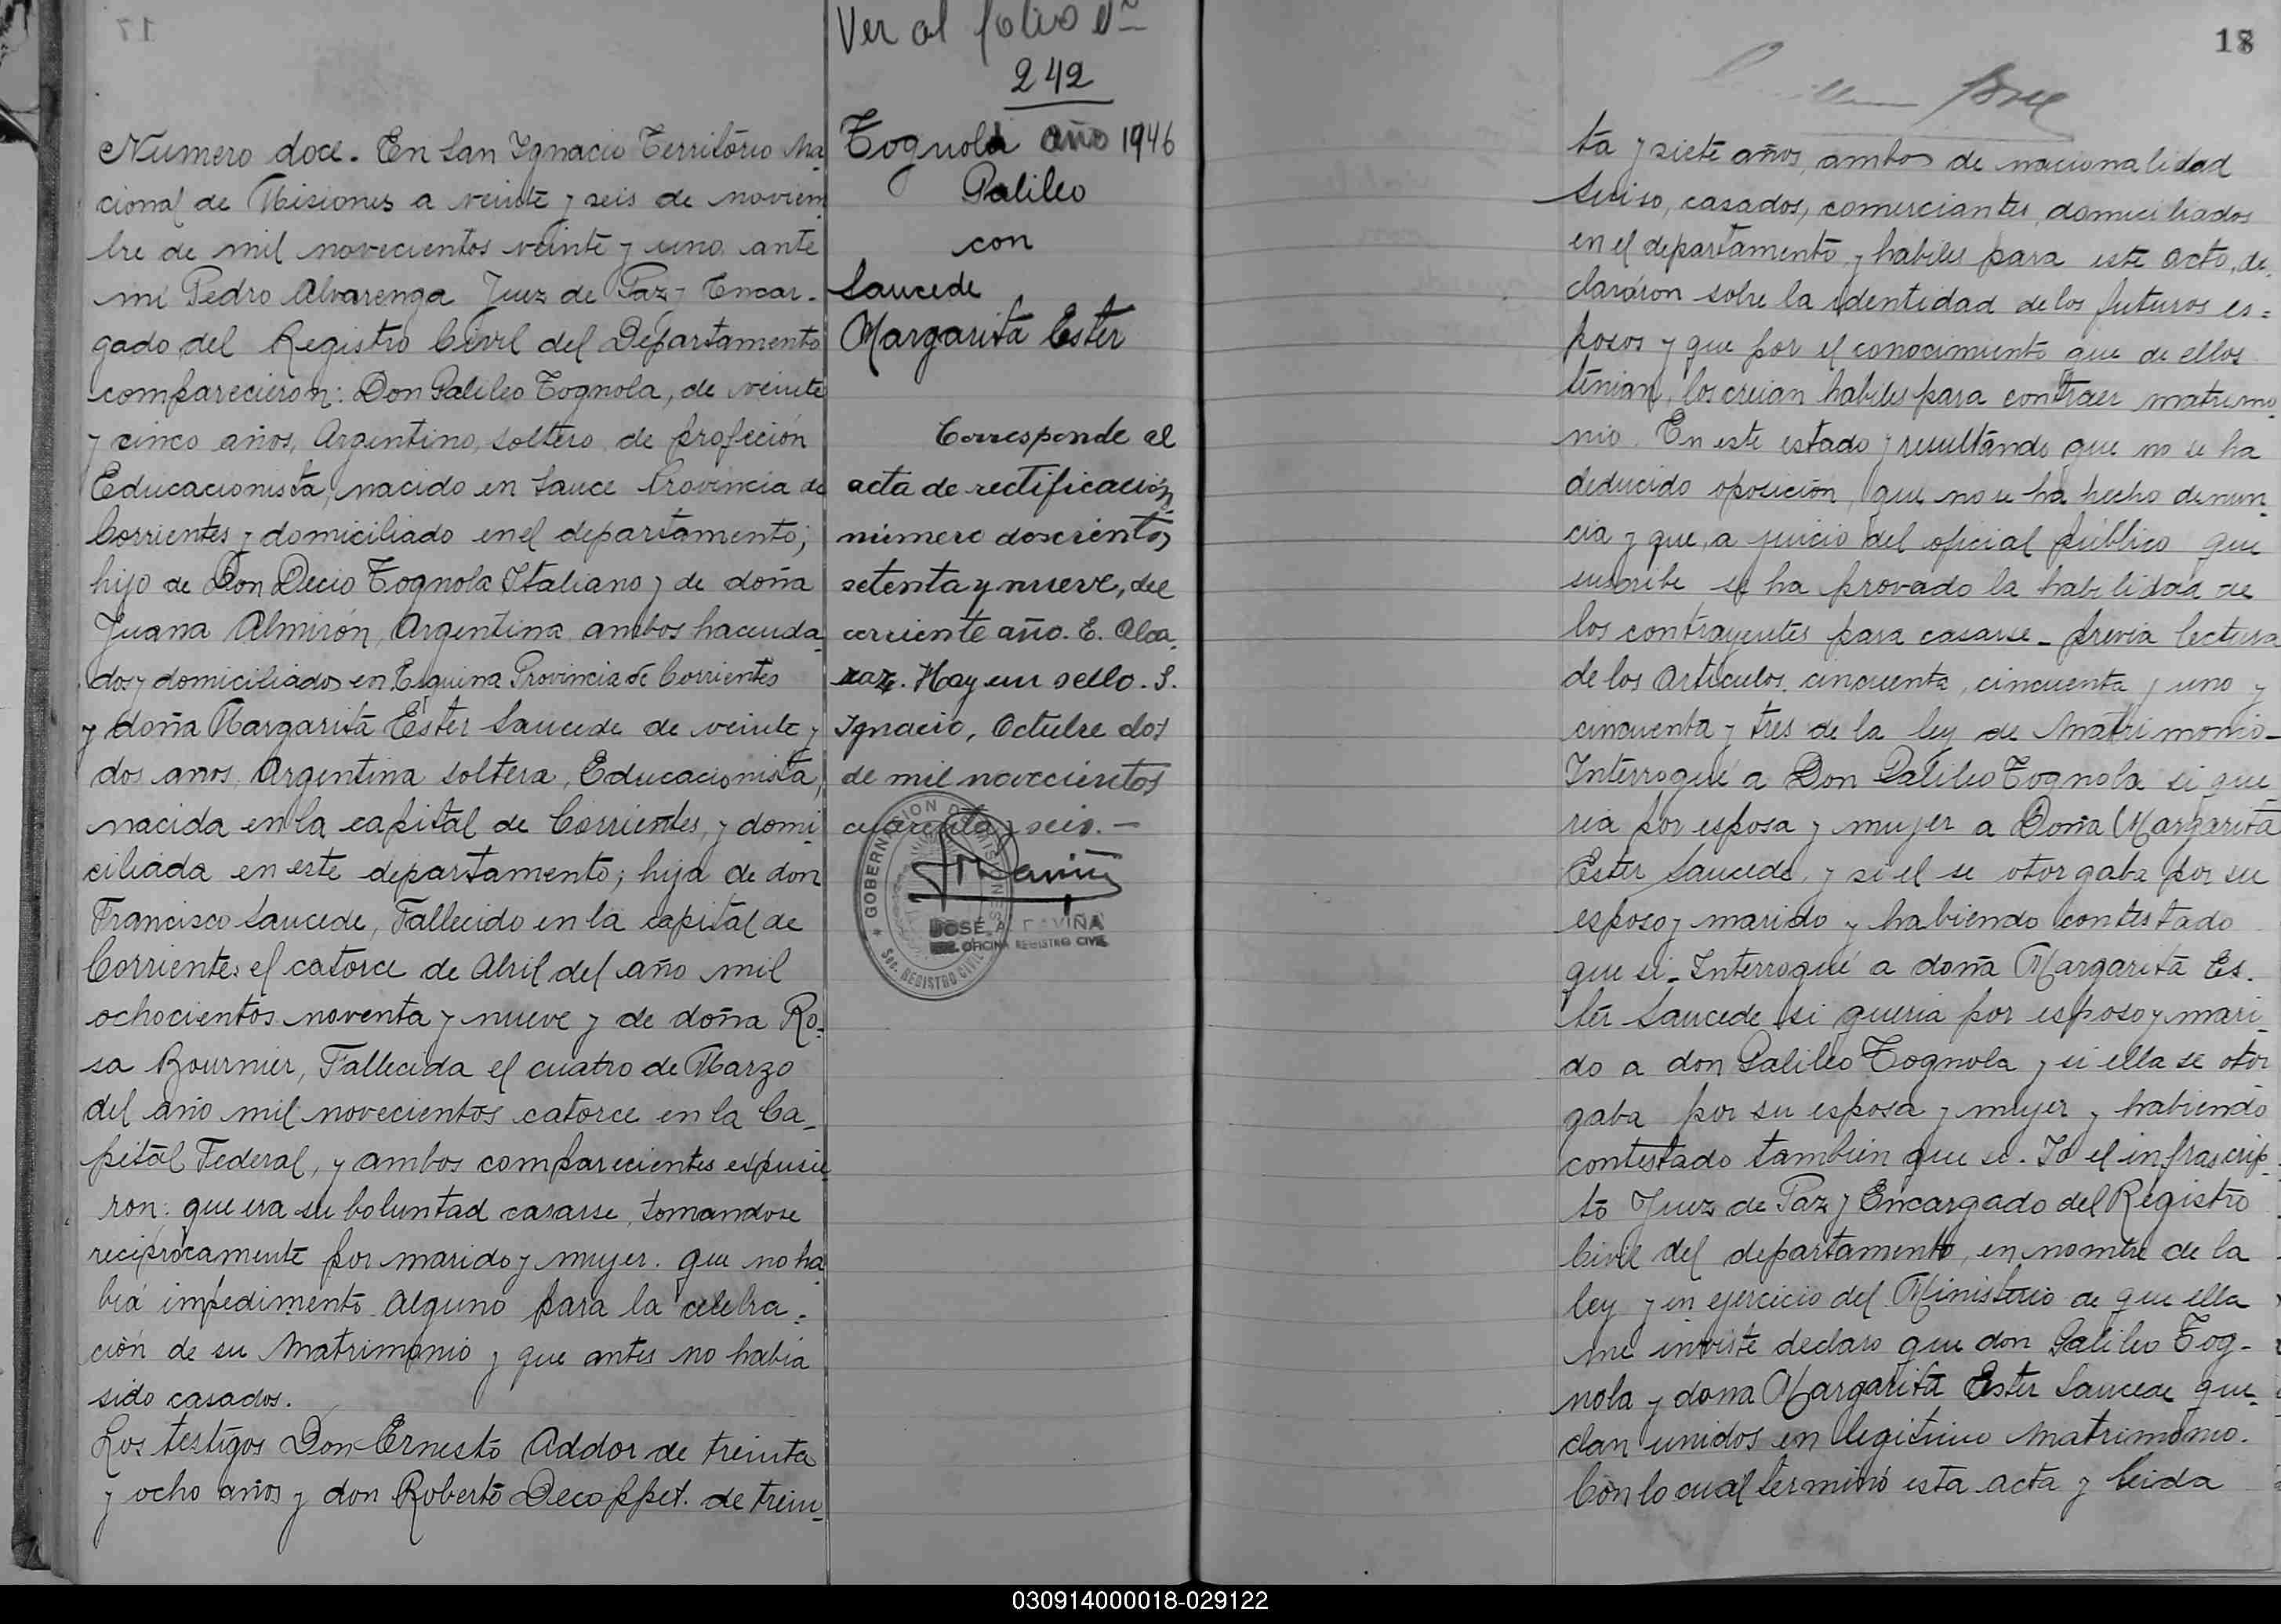 Numero doce. En San Ignacio Territorio Na
cional de Misiones a veinte y seis de noviem
bre de mil novecientos veinte y uno ante
mi Pedro Alvarenga Juez de Paz y Encar-
gado del Registro Civil del Departamento
comparecieron: Don Galileo Tognola, de veinte
y cinco años, Argentino, soltero, de profeción
Educacionista, nacido en Sauce Provincia de
Corrientes y domiciliado en el departamento;
hijo de Don Decio Tognola Italiano y de doña
Juana Almirón, Argentina ambos hacenda-
dos y domiciliados en Esquina Provincia de Corrientes
y doña Margarita Ester Saucede de veinte y
dos años, Argentina soltera, Educacionista,
nacida en la capital de Corrientes, y domi
ciliada en este departamento; hija de don
Francisco Saucede, Fallecido en la capital de
Corrientes el catorce de Abril del año mil
ochocientos noventa y nueve y de doña Ro-
sa Bournier, Fallecida el cuatro de Marzo
del año mil novecientos catorce en la Ca-
pital Federal, y ambos comparecientes expusie
ron: que era su boluntad casarse, tomandose
reciprocamente por marido y mujer. que no ha
bia impedimento alguno para la celebra-
ción de su Matrimonio y que antes no habia
sido casados.
Los testigos Don Ernesto Addor de treinta
y ocho años y don Roberto Decoppet. de trein-
Ver al folio Nº
242
Tognola año 1946
Galileo
con
Saucede
Margarita Ester
Corresponde al
acta de rectificación
número doscientos
setenta y nueve, del
corriente año. E. Alca-
raz. Hay un sello. S.
Ignacio, Octubre dos
de mil novecientos
cuarenta y seis. —
GOBERNACION DE MISIONES
Sec. REGISTRO CIVIL
JOSÉ A. DAVIÑA
OFICINA REGISTRO CIVIL
18
ta y siete años, ambos de nacionalidad
Suiso, casados, comerciantes, domiciliados
en el departamento, y habiles para este acto, de-
claráron sobre la identidad de los futuros es=
posos y que por el conocimiento que de ellos
tenian, los creian habiles para contraer matrimo-
nio. En este estado y resultando que no se ha
deducido oposición, que no se ha hecho denun-
cia y que, a juicio del oficial público que
suscribe se ha provado la habilidad de
los contrayentes para casarse - previa lectura
de los Articulos, cincuenta, cincuenta y uno y
cincuenta y tres de la ley de Matrimonio-
Interroqué a Don Galileo Tognola si que-
ria por esposa y mujer a Doña Margarita
Ester Saucede, y si el se otorgaba por su
esposo y marido y habiendo contestado
que si - Interroqué a doña Margarita Es-
ter Saucede si queria por esposo y mari-
do a don Galileo Tognola y si ella se otor
gaba por su esposa y mujer y habiendo
contestado tambien que si. Yo el infrascrip-
to Juez de Paz y Encargado del Registro
Civil del departamento, en nombre de la
ley y en ejercicio del Ministerio de que ella
me inviste declaro que don Galileo Tog-
nola y doña Margarita Ester Saucede que-
dan unidos en legitimo Matrimonio.
Con lo cual terminó esta acta y leida
030914000018-029122